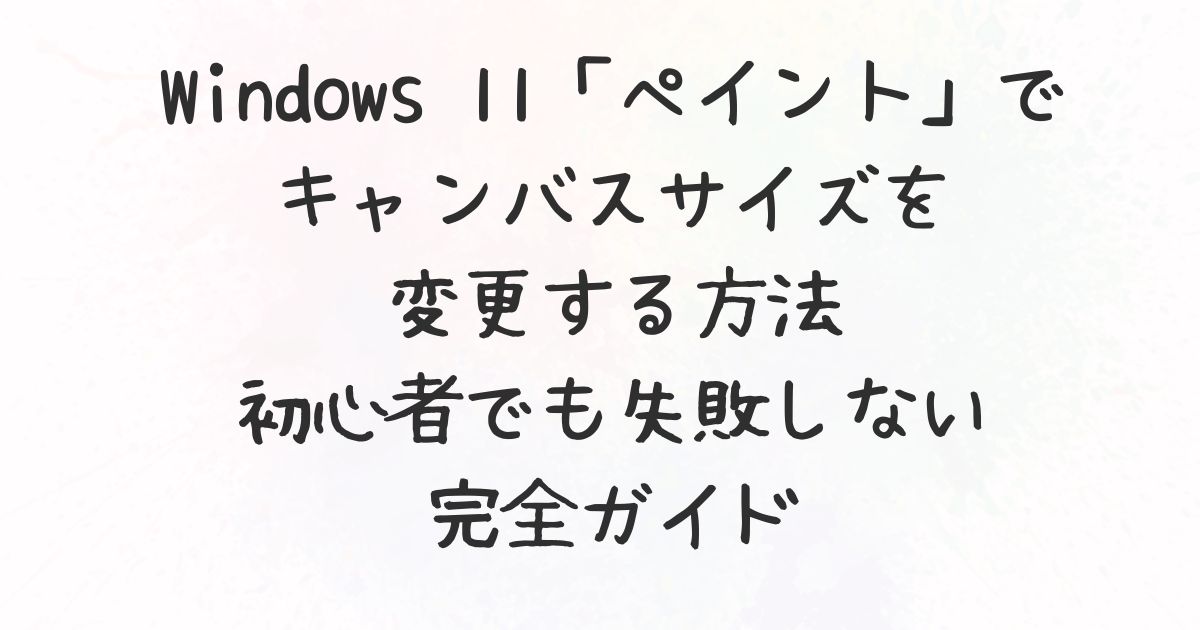 Windows 11「ペイント」で
キャンバスサイズを
変更する方法
初心者でも失敗しない
完全ガイド